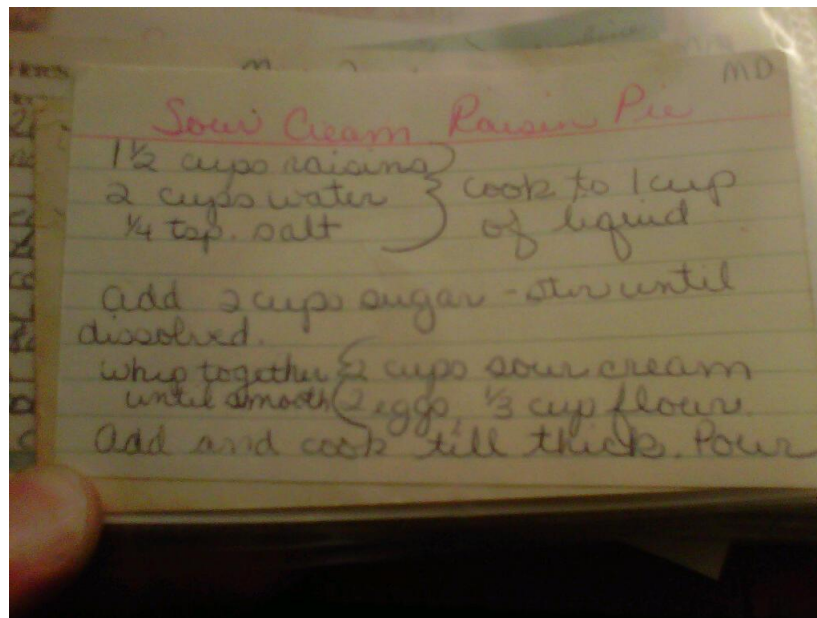 MD
Sour Cream Raisin Pie
1 1/2 cups raisins
2 cups water
1/4 tsp. salt
cook to 1 cup
of liquid
add 2 cups sugar - stir until
dissolved.
whip together 2 cups sour cream
until smooth 2 eggs, 1/3 cup flour
Add and cook till thick. Pour